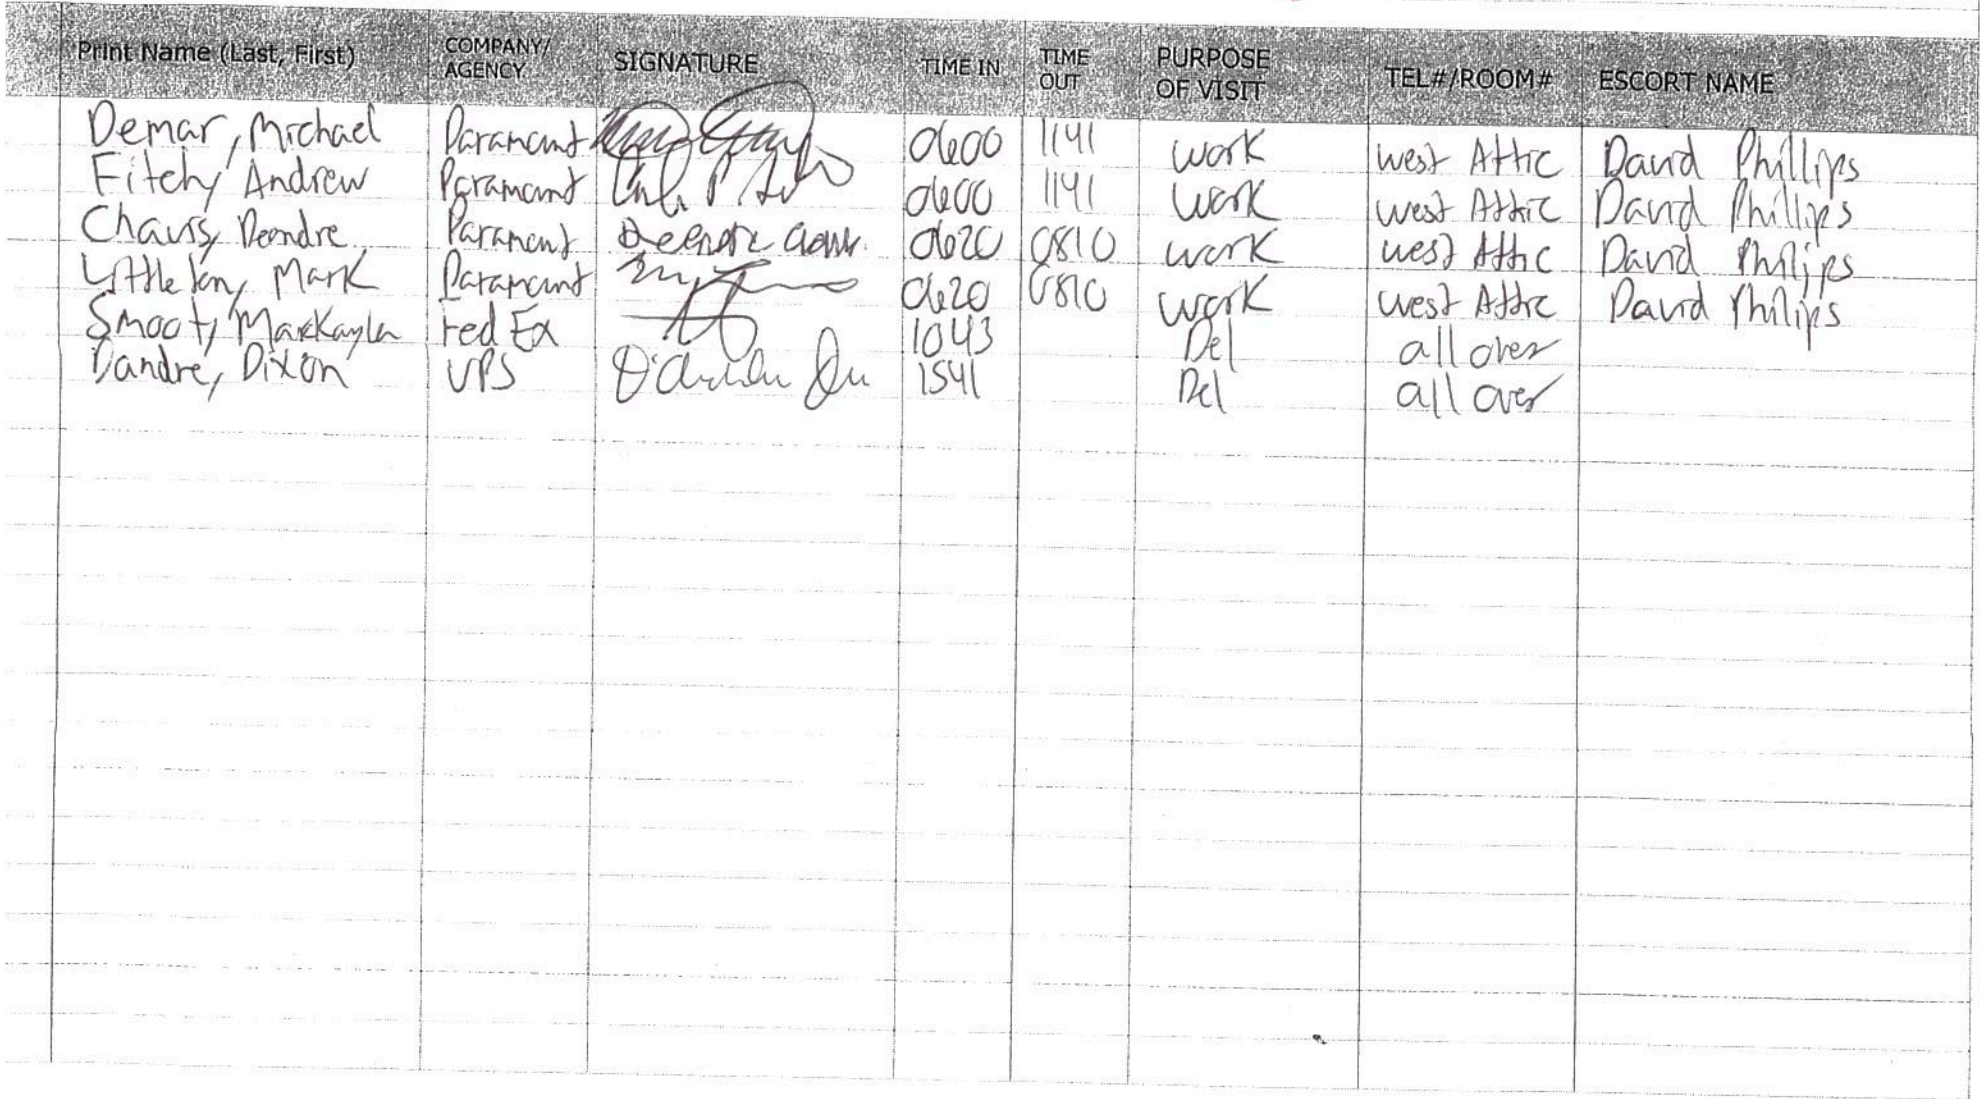 Print Name (Last, First) COMPANY/ AGENCY SIGNATURE TIME IN TIME OUT PURPOSE OF VISIT TEL#/ROOM# ESCORT NAME
Demar, Michael Paramount 0600 1141 work west Attic David Phillips
Fitch, Andrew Paramount 0600 1141 work west Attic David Phillips
Chavis, Deondre Paramount 0620 0810 work west Attic David Philips
Littleton, Mark Paramount 0620 0810 work west Attic David Philips
Smoot, MarKayla Fed Ex 1043 Del all over
Dandre, Dixon UPS 1541 Del all over